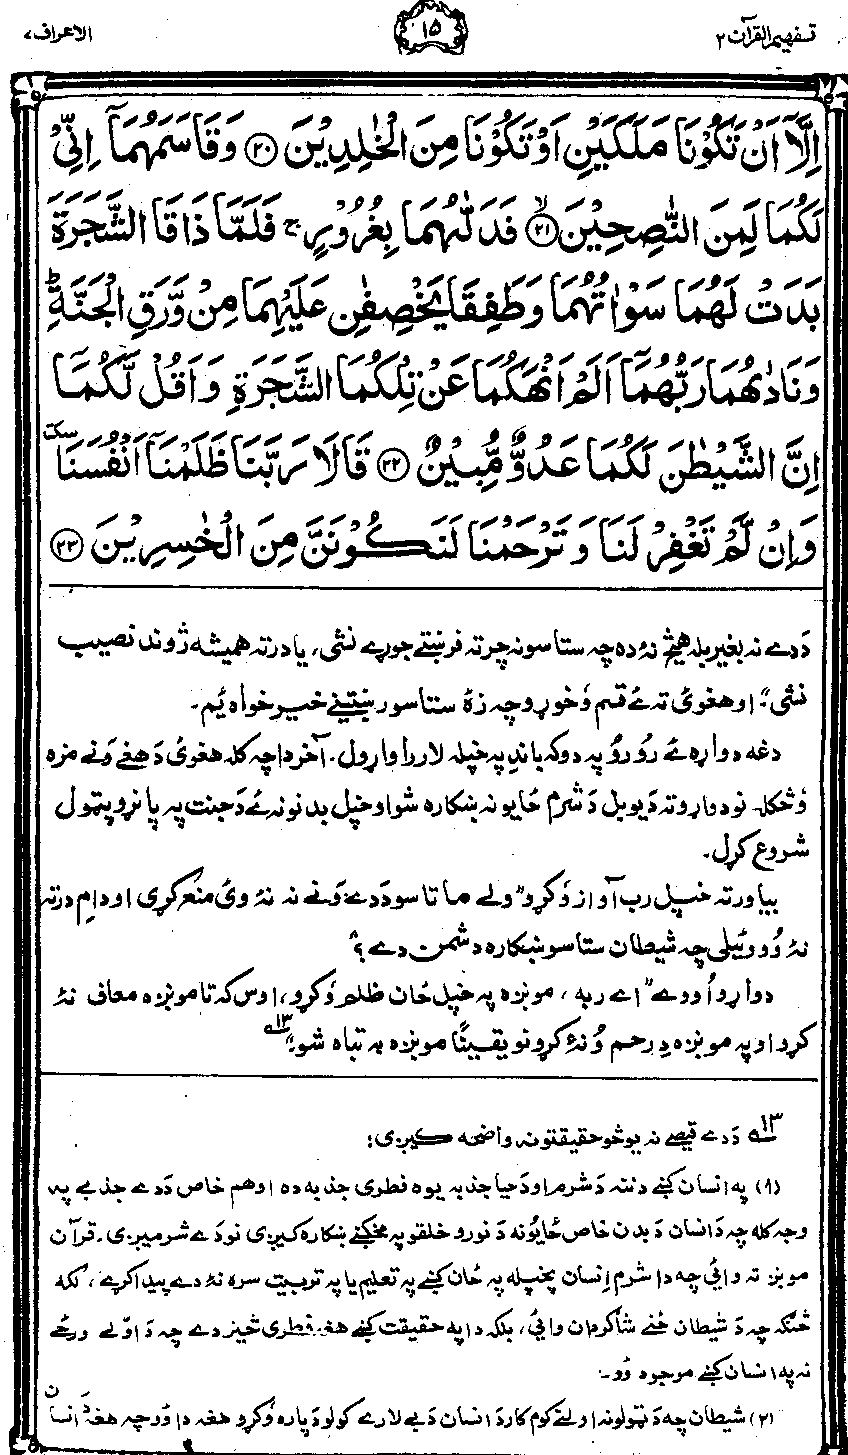 تفهيم القرآن ٢
١٥
الاعراف ٧
اِلَّآ اَنْ تَكُوْنَا مَلَكَيْنِ اَوْ تَكُوْنَا مِنَ الْخٰلِدِيْنَ ﴿٢٠﴾ وَقَاسَمَهُمَآ اِنِّيْ
لَكُمَا لَمِنَ النّٰصِحِيْنَ ﴿٢١﴾ۙ فَدَلّٰىهُمَا بِغُرُوْرٍ ۚ فَلَمَّا ذَاقَا الشَّجَرَةَ
بَدَتْ لَهُمَا سَوْاٰتُهُمَا وَطَفِقَا يَخْصِفٰنِ عَلَيْهِمَا مِنْ وَّرَقِ الْجَنَّةِ ؕ
وَنَادٰىهُمَا رَبُّهُمَآ اَلَمْ اَنْهَكُمَا عَنْ تِلْكُمَا الشَّجَرَةِ وَاَقُلْ لَّكُمَآ
اِنَّ الشَّيْطٰنَ لَكُمَا عَدُوٌّ مُّبِيْنٌ ﴿٢٢﴾ قَالَا رَبَّنَا ظَلَمْنَآ اَنْفُسَنَا سكتة
وَاِنْ لَّمْ تَغْفِرْ لَنَا وَتَرْحَمْنَا لَنَكُوْنَنَّ مِنَ الْخٰسِرِيْنَ ﴿٢٣﴾
دَدے نه بغير بله هيڅ نۀ ده چه ستاسونه چرته فرښتے جوړے نشی، يا درته هميشه ژوند نصيب
نشی"، او هغوئ ته ئے قسم وُخوړو چه زۀ ستاسو رښتينے خير خواه يُم۔
دغه دواړه ئے رُو رُو په دوکه باندِ په خپله لار راواړول۔ آخر دا چه کله هغوئ دَ هغے وَنے مزه
وُڅکله نو دواړو ته دَ يو بل دَ شرم ځايونه ښکاره شو او خپل بدنونه ئے دَ جنت په پاڼرو پټول
شروع کړل۔
بيا ورته خپل رب آواز وُکړو "ولے ما تاسو دَدے وَنے نه نۀ وئ منع کړی او دا مِ درته
نۀ وُو وئيلی چه شيطان ستاسو ښکاره دشمن دے؟"
دواړو اُووے "اے ربه، مونږه په خپل ځان ظلم وُکړو، اوس که تا مونږه معاف نۀ
کړو او په مونږه دِ رحم وُنۀ کړو نو يقينًا مونږه به تباه شو" ١٣ه
١٣ه دَدے قيصے نه يو څو حقيقتونه واضحه کيږی:
(١) په انسان کښے دننه دَ شرم او دَ حيا جذبه يوه فطری جذبه ده او هم خاص دَدے جذبے په
وجه کله چه دَ انسان دَ بدن خاص ځايونه دَ نورو خلقو په مخکښے ښکاره کيږی نو دے شرميږی۔ قرآن
مونږ ته وائی چه دا شرم اِنسان پخپله په ځان کښے په تعليم يا په تربيت سره نۀ دے پيدا کړے، لکه
څنګه چه دَ شيطان ځنے شاګردان وائی، بلکه دا په حقيقت کښے هغه فطری څيز دے چه دَ اوّلے ورځے
نه په انسان کښے موجود وُو۔
(٢) شيطان چه دَ ټولو نه اولنے کوم کار دَ انسان دَ بے لارے کولو دَپاره وُکړو هغه دا وُو چه هغۀ دَ انسان